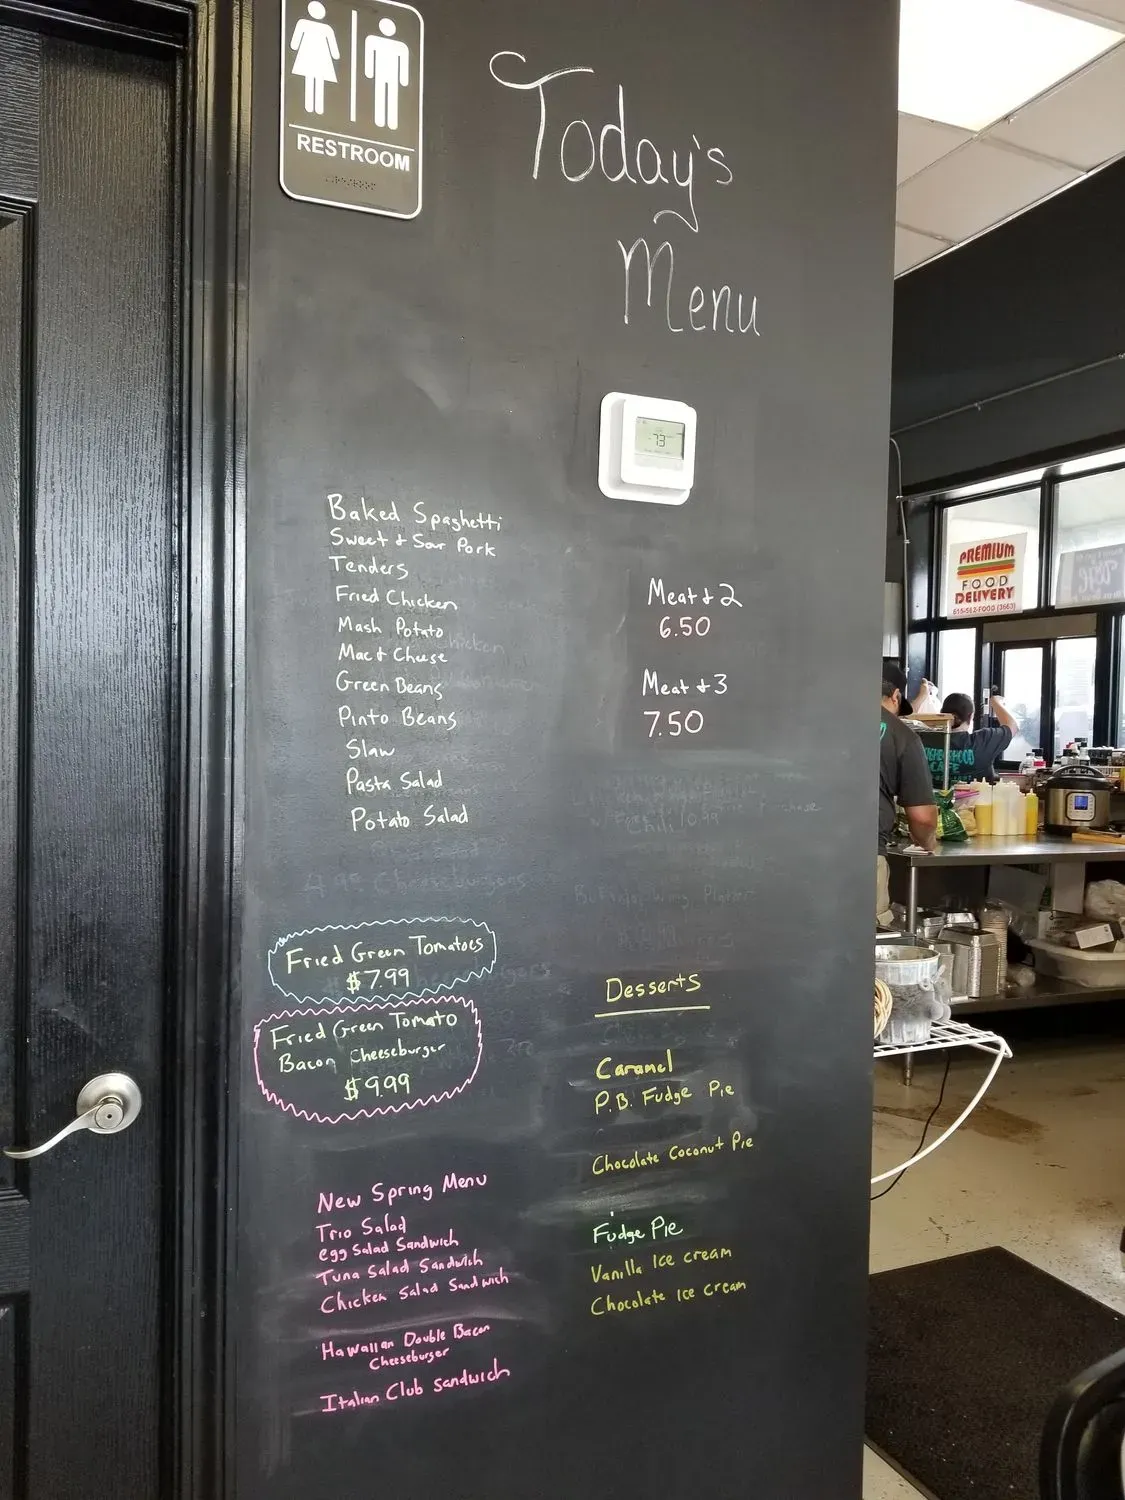 RESTROOM
Today's
Menu
73
Baked Spaghetti
Sweet & Sour Pork
Tenders
Fried Chicken
Mash Potato
Mac & Cheese
Green Beans
Pinto Beans
Slaw
Pasta Salad
Potato Salad
Meat & 2
6.50
Meat & 3
7.50
Fried Green Tomatoes
$7.99
Fried Green Tomato
Bacon Cheeseburger
$9.99
New Spring Menu
Trio Salad
egg Salad Sandwich
Tuna Salad Sandwich
Chicken Salad Sandwich
Hawaiian Double Bacon
Cheeseburger
Italian Club Sandwich
Desserts
Caramel
P.B. Fudge Pie
Chocolate Coconut Pie
Fudge Pie
Vanilla Ice cream
Chocolate Ice cream
PREMIUM
FOOD
DELIVERY
615-562-FOOD (3663)